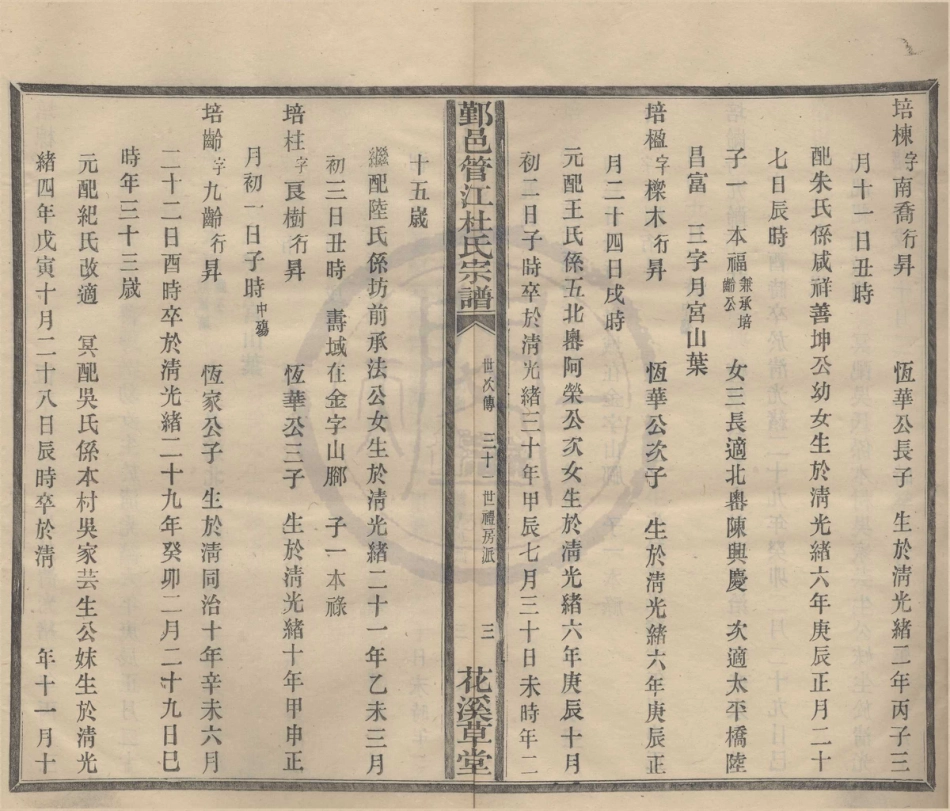 培棟字南喬行昇 恆華公長子 生於清光緒二年丙子三
月十一日丑時
配朱氏係咸祥善坤公幼女生於清光緒六年庚辰正月二十
七日辰時
子一本福兼承培齡公 女三長適北嶴陳興慶 次適太平橋陸
昌富 三字月宮山葉
培楹字樑木行昇 恆華公次子 生於清光緒六年庚辰正
月二十四日戌時
元配王氏係五北嶴阿榮公次女生於清光緒六年庚辰十月
初二日子時卒於清光緒三十年甲辰七月三十日未時年二
鄞邑管江杜氏宗譜 世次傳 三十一世禮房派 三 花溪草堂
十五歲
繼配陸氏係坊前承法公女生於清光緒二十一年乙未三月
初三日丑時 壽域在金字山腳 子一本祿
培柱字良樹行昇 恆華公三子 生於清光緒十年甲申正
月初一日子時中殤
培齡字九齡行昇 恆家公子 生於清同治十年辛未六月
二十二日酉時卒於清光緒二十九年癸卯二月二十九日巳
時年三十三歲
元配紀氏改適 冥配吳氏係本村吳家芸生公妹生於清光
緒四年戊寅十月二十八日辰時卒於清 年十一月十